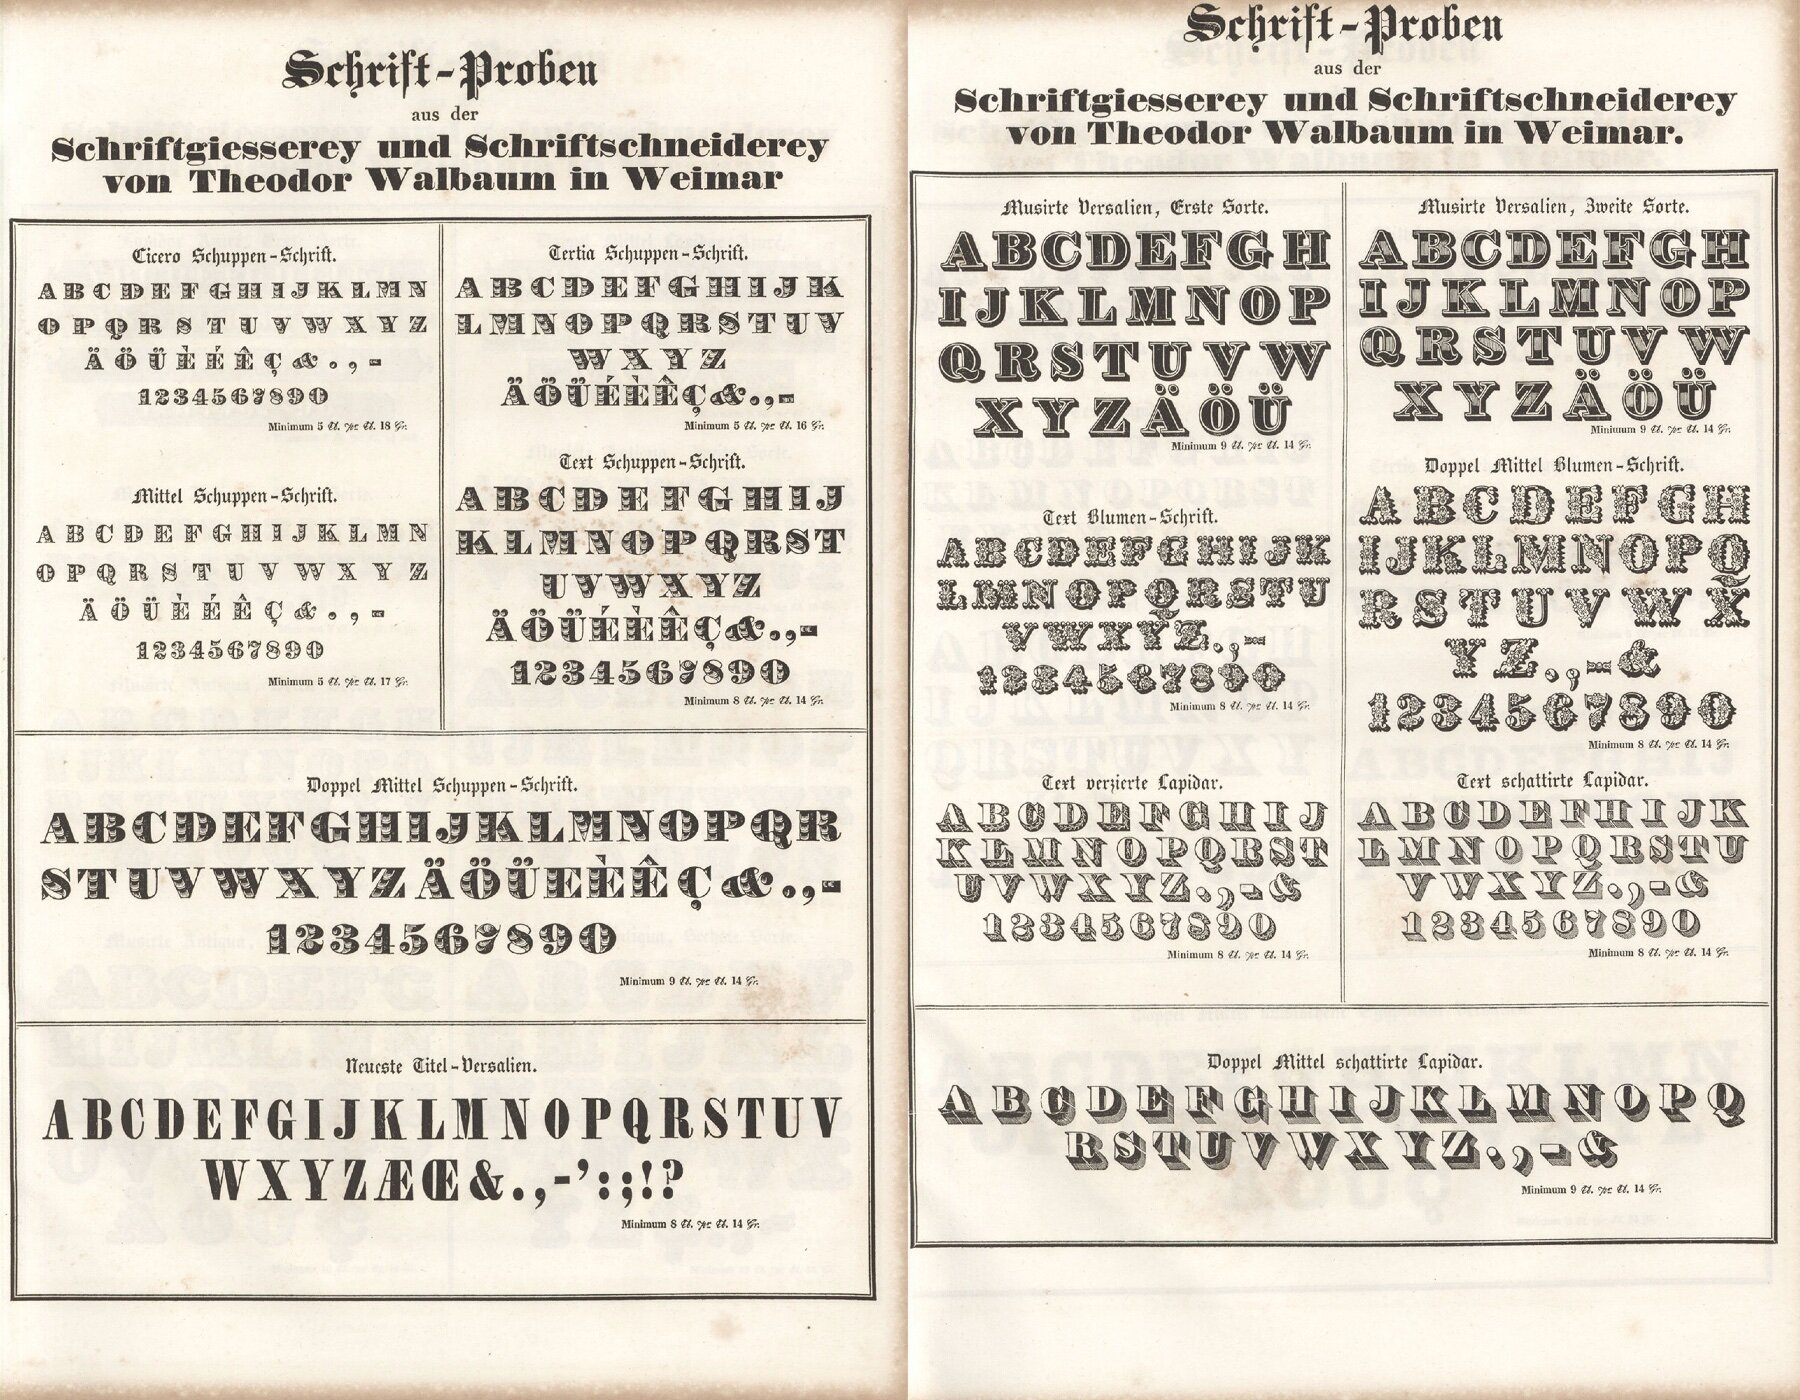 Schrift-Proben
aus der
Schriftgiesserey und Schriftschneiderey
von Theodor Walbaum in Weimar
Cicero Schuppen-Schrift.
A B C D E F G H I J K L M N
O P Q R S T U V W X Y Z
Ä Ö Ü È É Ê Ç & . , -
1234567890
Minimum 5 ℔. pr ℔. 18 Gr.
Mittel Schuppen-Schrift.
A B C D E F G H I J K L M N
O P Q R S T U V W X Y Z
Ä Ö Ü È É Ê Ç & . , -
1234567890
Minimum 5 ℔. pr ℔. 17 Gr.
Tertia Schuppen-Schrift.
A B C D E F G H I J K
L M N O P Q R S T U V
W X Y Z
ÄÖÜÉÈÊÇ&.,-
Minimum 5 ℔. pr ℔. 16 Gr.
Text Schuppen-Schrift.
A B C D E F G H I J
K L M N O P Q R S T
U V W X Y Z
ÄÖÜÉÈÊÇ&.,-
1234567890
Minimum 8 ℔. pr ℔. 14 Gr.
Doppel Mittel Schuppen-Schrift.
ABCDEFGHIJKLMNOPQR
STUVWXYZÄÖÜEÈÊÇ&.,-
1234567890
Minimum 9 ℔. pr ℔. 14 Gr.
Neueste Titel-Versalien.
ABCDEFGIJKLMNOPQRSTUV
WXYZÆŒ&.,-':;!?
Minimum 8 ℔. pr ℔. 14 Gr.
Schrift-Proben
aus der
Schriftgiesserey und Schriftschneiderey
von Theodor Walbaum in Weimar.
Musirte Versalien, Erste Sorte.
ABCDEFGH
IJKLMNOP
QRSTUVW
XYZÄÖÜ
Minimum 9 ℔. pr ℔. 14 Gr.
Text Blumen-Schrift.
ABCDEFGHIJK
LMNOPQRSTU
VWXYZ.,-
1234567890
Minimum 8 ℔. pr ℔. 14 Gr.
Text verzierte Lapidar.
ABCDEFGHIJ
KLMNOPQRST
UVWXYZ.,-&
1234567890
Minimum 8 ℔. pr ℔. 14 Gr.
Musirte Versalien, Zweite Sorte.
ABCDEFGH
IJKLMNOP
QRSTUVW
XYZÄÖÜ
Minimum 9 ℔. pr ℔. 14 Gr.
Doppel Mittel Blumen-Schrift.
ABCDEFGH
IJKLMNOPQ
RSTUVWX
YZ.,-&
1234567890
Minimum 8 ℔. pr ℔. 14 Gr.
Text schattirte Lapidar.
ABCDEFHIJK
LMNOPQRSTU
VWXYZ.,-&
1234567890
Minimum 8 ℔. pr ℔. 14 Gr.
Doppel Mittel schattirte Lapidar.
ABCDEFGHIJKLMNOPQ
RSTUVWXYZ.,-&
Minimum 9 ℔. pr ℔. 14 Gr.